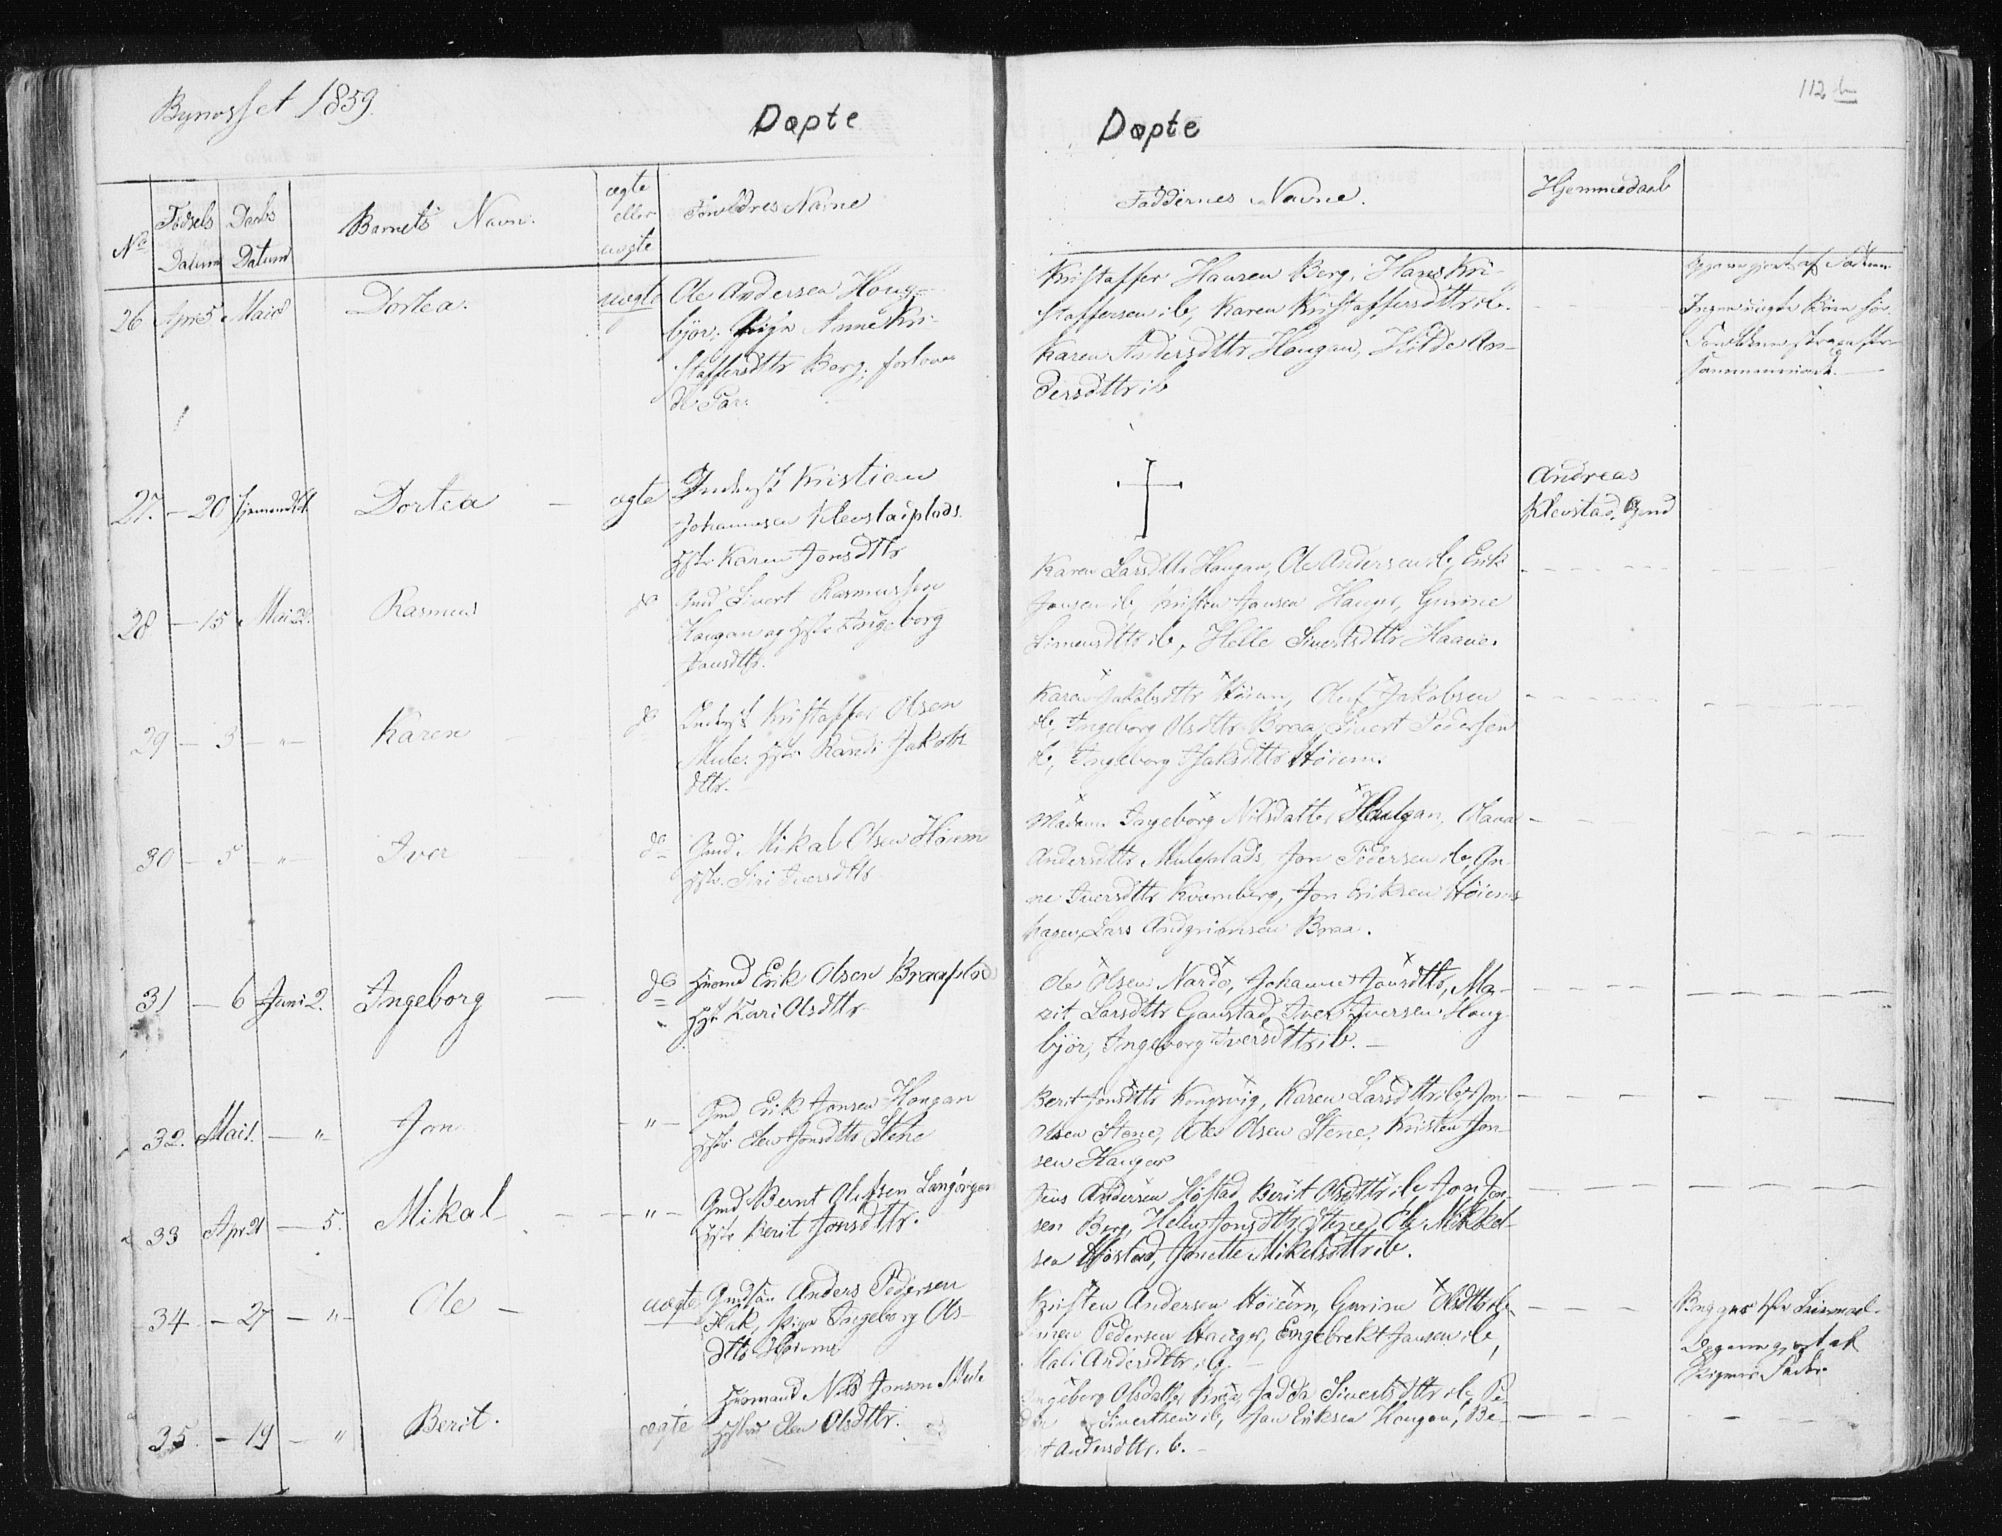 Bynesset 1859.
Døpte
Døpte
112
No
Fødsels Datum
Daabs Datum
Barnets Navn.
ægte eller uægte
Forældres Navne
Faddernes Navne.
Hjemmedaab
26 Apr 5 Mai 8 Dortea. uægte Ole Andersen Houg-
bjør. Pige Anne Kri-
staffersdttr Berg, forlove
de Par.
Kristaffer Hansen Berg, Hans Kri-
staffersen ib, Karen Kristaffersdttr ib.
Karen Andersdttr Hougan, Kilde An-
dersdttr ib
27. - 20 hjemmedbt Dortea - ægte Inderst Kristian
Johannesen Klevstadplads.
Hstr Karen Jonsdttr
Andreas
Klevstad, Gmd
28 - 15 Mai 22. Rasmus do Gmd Sivert Rasmussen
Hougan og Hstr Ingeborg
Jonsdttr.
Karen Larsdttr Hougan, Ole Andersen ib, Erik
Jonsen ib, Kristen Jansen Hauger, Gurine
Simonsdttr ib, Helle Sivertsdttr Haave.
29 - 3 - " - Karen do Inderst Kristaffer Olsen
Mule. Hstr Randi Jakobs
dttr.
Karen Jakobsdttr Høiem, Oluf Jakobsen
ib, Ingeborg Olsdttr Braa, Sivert Pedersen
ib, Ingeborg Jakobsdttr Høiem.
30 - 5 - " - Iver do Gmd. Mikal Olsen Høiem
Hstr. Siri Iversdttr
Madam Ingeborg Nilsdatter Haugan, Olava
Andersdttr Muleplads, Jon Pedersen ib, An-
ne Iversdttr Kvarnberg, Jon Eriksen Høiems
hagen, Lars Andgrimsen Braa.
31 - 6 Juni 2. Ingeborg - do Huusmd Erik Olsen Braaplads
Hstr Kari Olsdttr
Ole Olsen Nardo, Johanne Jonsdttr, Ma-
rit Larsdttr Gaustad, Iver Iversen Houg
bjør, Ingeborg Iversdttr ib. -
32. Mai 1. - " Jon - " - Gmd Erik Jonsen Hougan
Hstr Elen Jonsdttr Stene
Berit Jonsdttr Kongsvig, Karen Larsdttr ib, Jon
Olsen Stene, Ole Olsen Stene, Kristen Jon-
sen Hauger
33 Apr 21 - 5. Mikal - " - Gmd Bernt Olefsen Langørgen
Hstr Berit Jonsdttr.
Jens Andersen Høstad, Berit Olsdttr ib, Jon Jon-
sen Berg, Helen Jonsdttr Stene, Ole Mikkel-
sen Høstad, Jonette Mikelsdttr ib.
34. - 27 - " - Ole - uægte Gmdsøn Anders Pedersen
Hak, Pige Ingeborg Ols-
dttr Høiem
Kristen Andersen Høiem, Gurine Olsdttr ib
Pedersen Hauger, Engebrekt Jansen ib,
Mali Andersdttr ib. -
Begges 1ste Leiermaal.
35. - 19 - " Berit. ægte Huusmand Nils Jonson Mule
Hstr Elen Olsdttr.
Ingeborg Olsdatter Krge, Jadda Sivertsdttr ib, Pe-
Sivertsen ib, Jon Eriksen Hougan, Be-
rit Andersdttr. ib. -